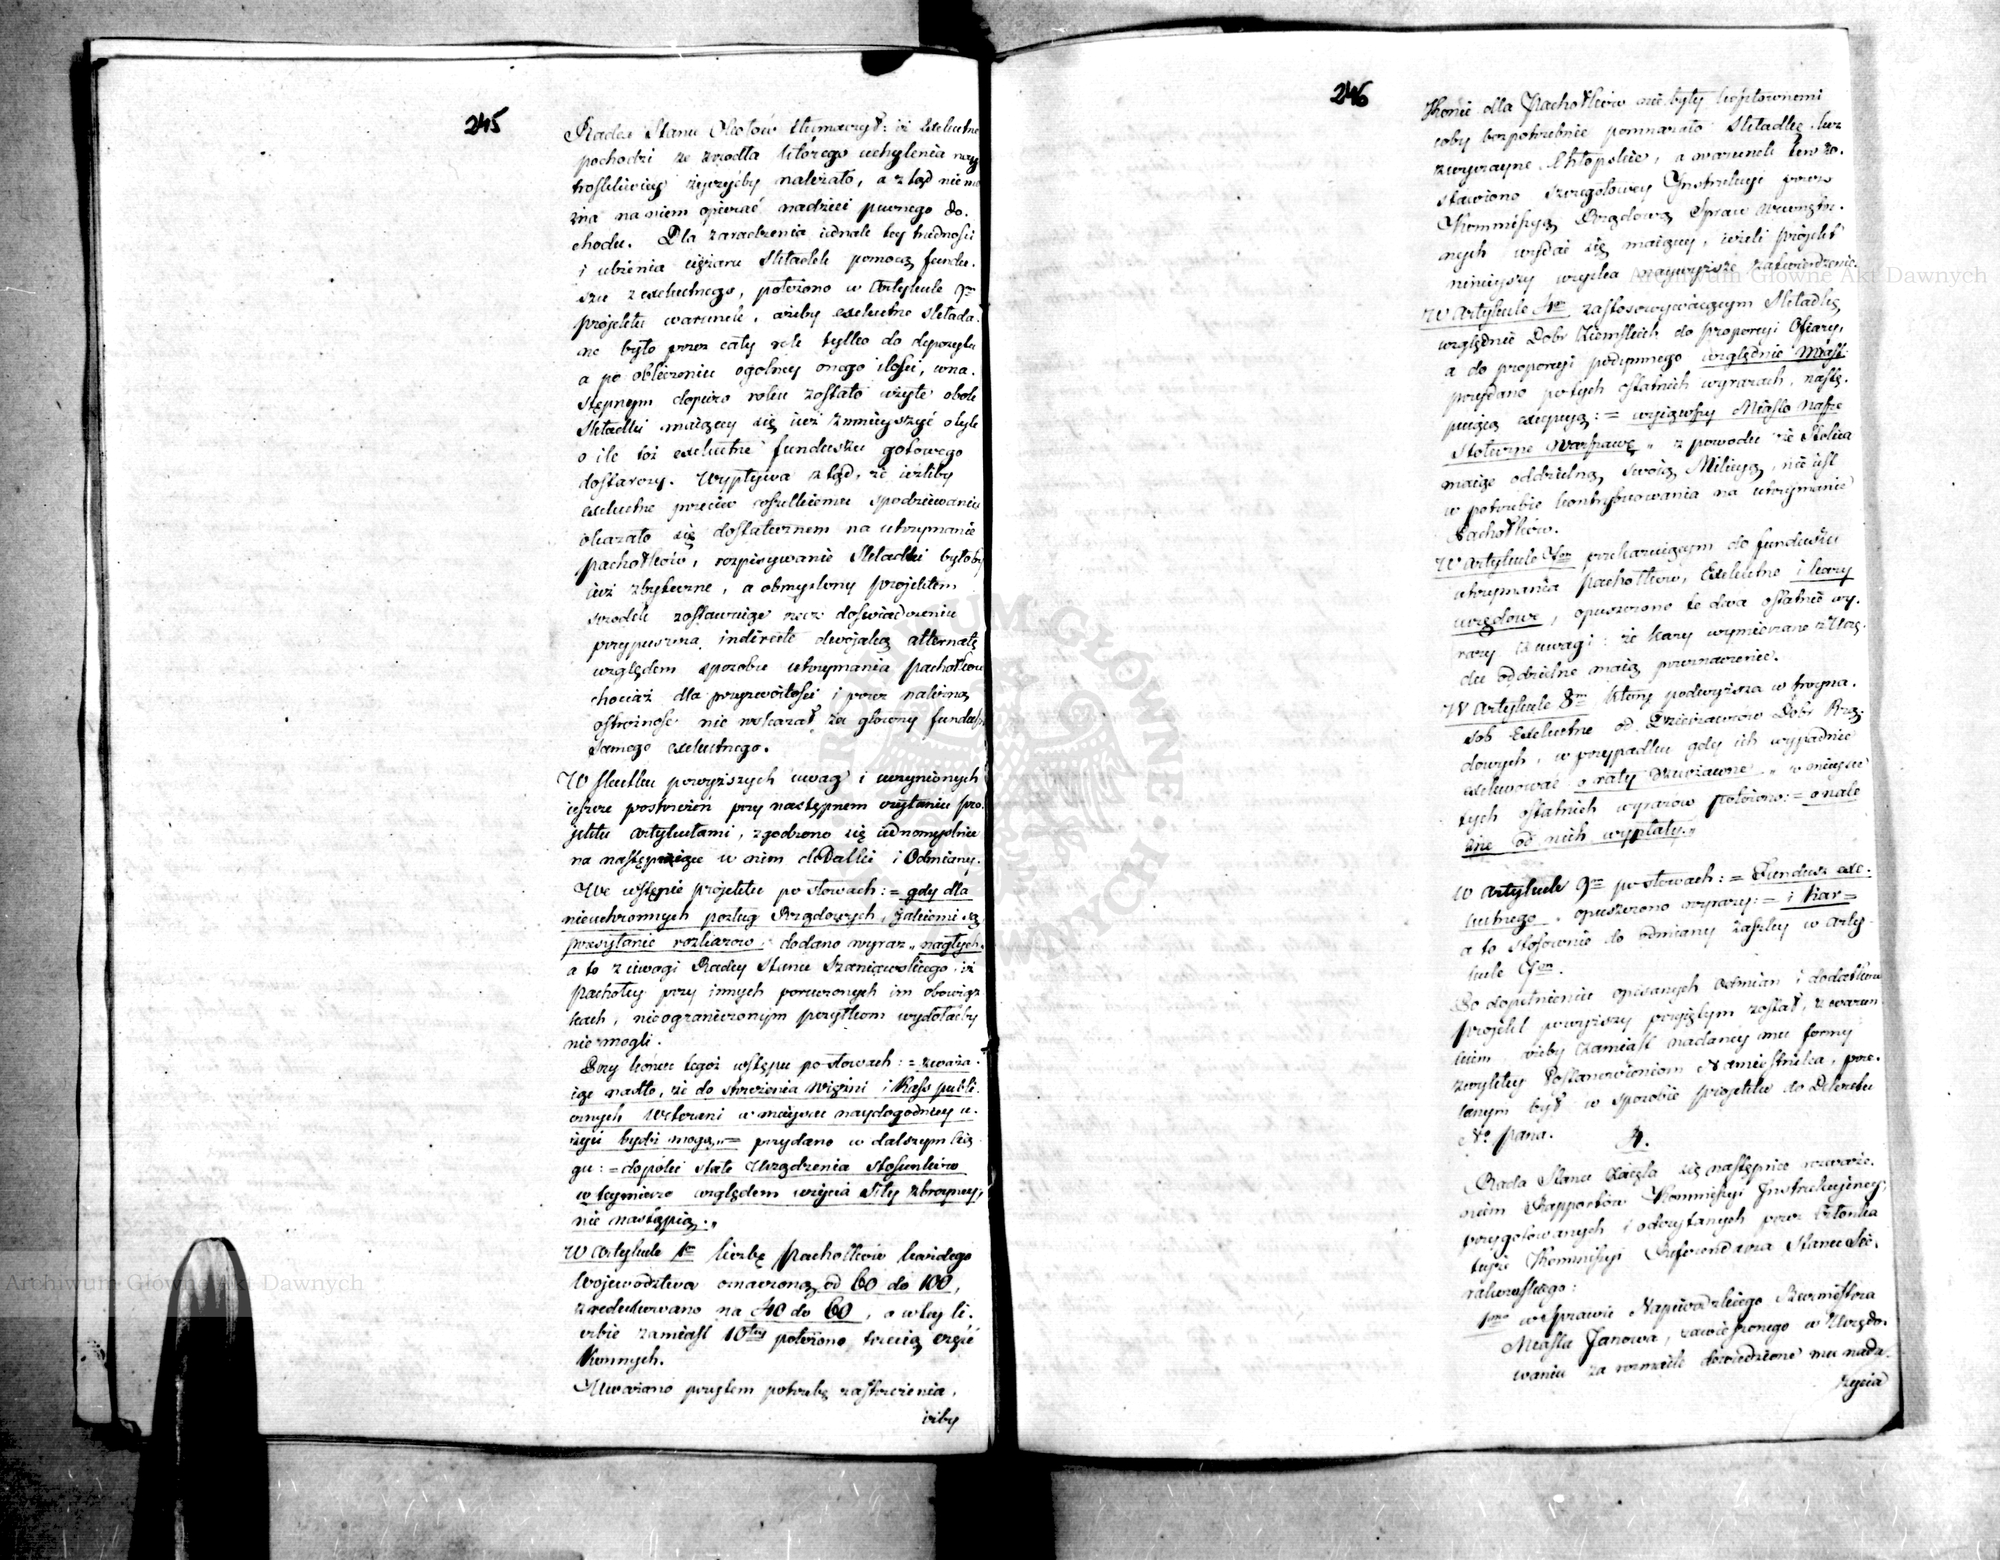 245
Radca Stanu Okołów tłumaczył: iż Exekutne
pochodzi ze źrodła którego uchylenia nay
troskliwiey życzyćby należało, a ztąd nie mo
żna na niem opierać nadziei pewnego do.
chodu. Dla zaradzenia iednak tey trudności
i ulżenia ciężaru Składek pomocą fundu.
szu z exekutnego, położono w Artykule 9m
projektu warunek, ażeby exekutne składa.
ne było przez cały rok tylko do depozytu
a po obliczeniu ogólney onego ilości, w na.
stępnym dopiero roku zostało użyte obok
Składki maiącey się iuż zmnieyszyć o tyle
o ile toż exekutne funduszu gotowego
dostarczy. Wypływa ztąd, że ieżliby
exekutne przeciw wszelkiemu spodziewaniu
okazało się dostatecznem na utrzymanie
pachołków, rozpisywanie Składki byłoby
iuż zbyteczne, a obmyślony projektem
srodek zostawuiąc rzecz doświadczeniu
przypuszcza indirecte dwojaką alternatę
względem sposobu utrzymania pachołków
chociaż dla przyzwoitości i przez należną
ostrożność nie wskazał za głowny fundusz
samego exekutnego.
W skutku powyższych uwag i uczynionych
ieszcze postrzeżeń przy następnem czytaniu pro.
jektu artykułami, zgodzono się iednomyślnie
na następuiące w nim dodatki i Odmiany.
We wstępie projektu po słowach: = gdy dla
nieuchronnych posług Rządowych, jakiemi są
przesyłanie rozkazow: dodano wyraz „nagłych"
a to z uwagi Radcy Stanu Szaniawskiego, iż
pachołcy przy innych poruczonych im obowiąz
kach, nieograniczonym posyłkom wydołaćby
nie mogli.
Przy końcu tegoż wstępu po słowach: = zważa.
iąc nadto, że do strzeżenia więzni i Kass publi.
cznych Weterani w mieyscu naydogodniey u.
życi bydź mogą„ = przydano w dalszym cią
gu: = dopóki stałe Urządzenia stosunków
w teymierze względem użycia siły zbroyney,
nie nastąpią.„
W Artykule 1m liczbę Pachołków każdego
Województwa oznaczoną od 60 do 100,
zredukowano na 40 do 60, a w tey li.
czbie zamiast 10tey położono trzecią część
Konnych.
Uważano przytem potrzebę zastrzeżenia,
iżby
246
Konie dla Pachołków nie były kosztownemi
coby bezpotrzebnie pomnażało Składkę, lecz
zwyczayne Chłopskie, a warunek ten zo.
stawiono szczegołowey Instrukcyi przez
Kommissyą Rządową Spraw Wewnętrz.
nych wydać się maiącey, ieżeli projekt
ninieyszy uzyska naywyższe zatwierdzenie.
W Artykule 4m zastosowywaiącym Składkę
względnie Dobr Ziemskich do proporcyi Ofiary,
a do proporcyi podymnego względnie Miast:
przydano po tych ostatnich wyrazach, nastę.
puiącą excepcyą: = wyiąwszy Miasto Nasze
Stołeczne Warszawę „ z powodu że Stolica
maiąc oddzielną swoią Milicyą, nie iest
w potrzebie kontrybuowania na utrzymanie
Pachołków.
W Artykule 7m przekazuiącym do funduszu
utrzymania pachołków, Exekutne i kary
urzędowe, opuszczono te dwa ostatnie wy.
razy z uwagi: że kary wymierzane z Urzę.
du oddzielne maią przeznaczenie.
W Artykule 8m który podwyższa w troyna.
sob Exekutne od Dzierżawców Dobr Rzą.
dowych, w przypadku gdy ich wypadnie
exekwować o raty dzierżawne „ w mieysce
tych ostatnich wyrazów położono: = o nale
żne od nich wypłaty.„
W Artykule 9m po słowach: = Fundusz exe.
kutnego, opuszczono wyrazy: = i kar =
a to stosownie do odmiany zaszłey w arty.
kule 7m.
Po dopełnieniu opisanych Odmian i dodatków
projekt powyższy przyiętym został, z warun
kiem, ażeby zamiast nadaney mu formy
zwykłey Postanowieniom Namiestnika, poda.
wanym był w sposobie projektu do Dekretu
N. Pana.
4.
Rada Stanu zaięła się następnie rozważe.
niem Rapportów Kommissyi Instrukcyiney,
przygotowanych i odczytanych przez Członka
teyże Kommissyi Referendarza Stanu
1mo w Sprawie Napiwodzkiego Burmistrza
Miasta Janowa, zawieszonego w Urzędo.
waniu za rozmaite dowiedzione mu nadu.
życia
Archiwum Główne Akt Dawnych
Archiwum Główne Akt Dawnych
ARCHIWUM GŁÓWNE AKT DAWNYCH